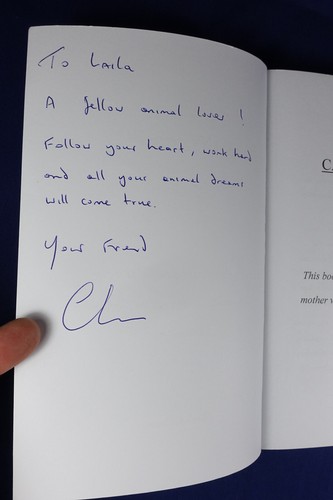 To Laila
A fellow animal lover!
Follow your heart, work hard
and all your animal dreams
will come true.
Your Friend
This boo
mother v